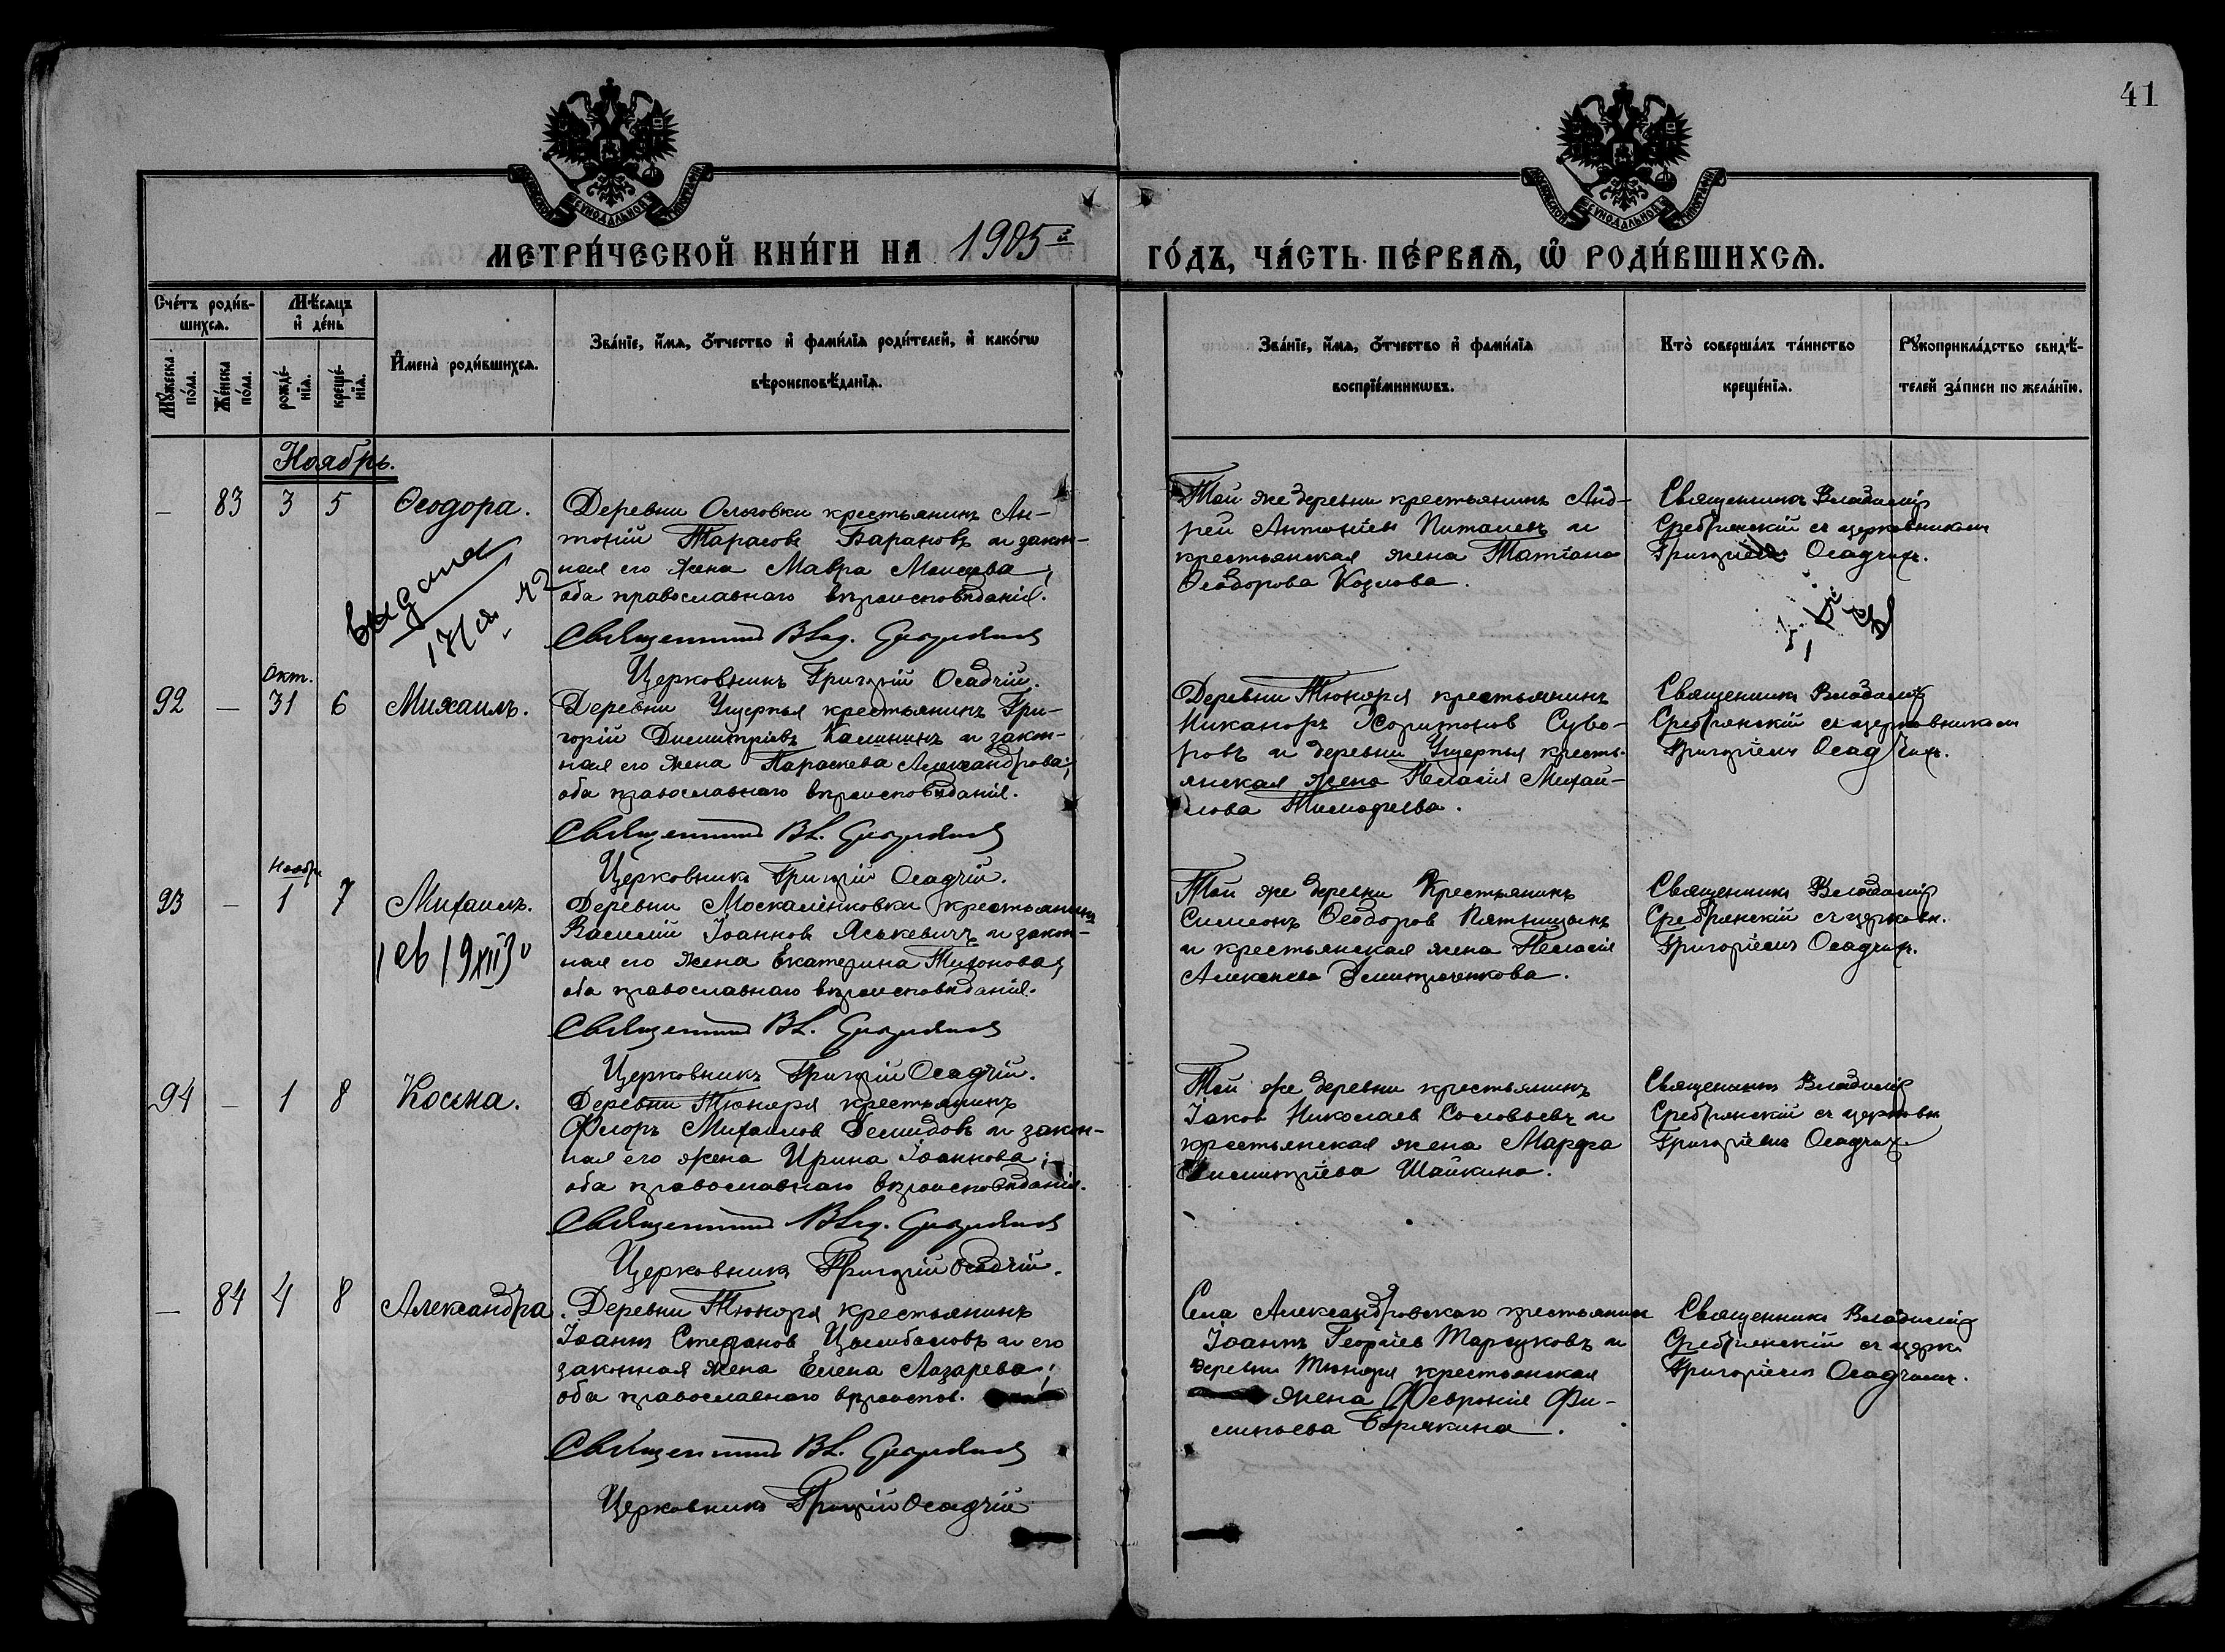 41
МОСКОВСКОЙ СѴНОДАЛЬНОЙ ТИПОГРАФІИ
МОСКОВСКОЙ СѴНОДАЛЬНОЙ ТИПОГРАФІИ
МЕТРИ́ЧЕСКОЙ КНИ́ГИ НА 1905й
ГО́ДЪ, ЧА́СТЬ ПЕ́РВАѦ, Ѡ҆ РОДИ́ВШИХСѦ.
Сче́тъ роди́в-
шихсѧ.
Мꙋ́жеска по́ла.
Же́нска по́ла.
Мѣ́сѧцъ
и҆ де́нь
рожде́-
нїѧ.
креще́-
нїѧ.
И҆мена̀ роди́вшихсѧ.
Зва́нїе, и҆́мѧ, ѻ҆́тчество и҆ фами́лїѧ роди́телей, и҆ како́гѡ
вѣроисповѣ́данїѧ.
Зва́нїе, и҆́мѧ, ѻ҆́тчество и҆ фами́лїѧ
воспрїе́мникѡвъ.
Кто̀ соверша́лъ та́инство
креще́нїѧ.
Рꙋкоприкла́дство свидѣ́-
телей за́писи по жела́нїю.
Ноябрь.
— 83 3 5 Ѳеодора.
Деревни Ольговки крестьянинъ Ан-
тоній Тарасовъ Барановъ и закон-
ная его жена Мавра Моисеева;
оба православнаго вѣроисповѣданія.
Священникъ Влад.
Церковникъ Григорій Осадчій.
выдана
Той же деревни крестьянинъ Анд-
рей Антоніевъ и
крестьянская жена Татіана
Ѳеодорова Козлова.
Священникъ Владимір
Сребрянскій съ церковникомъ
Григоріемъ Осадчимъ.
Окт.
92 — 31 6 Михаилъ.
Деревни Ущерпья крестьянинъ Гри-
горій Димитріевъ Калининъ и закон-
ная его жена Параскева Александрова;
оба православнаго вѣроисповѣданія.
Священникъ Вл.
Церковникъ Григорій Осадчій.
Деревни Тюнера крестьянинъ
Никаноръ Харитонов Суво-
ровъ и деревни Ущерпья кресть-
янская жена Пелагія Михаи-
лова Тимофеева.
Священникъ Владимір
Сребрянскій съ церковникомъ
Григоріемъ Осадчимъ.
Ноябр
93 — 1 7 Михаилъ.
Деревни Москаленковки крестьянинъ
Василій Іоаннов Яськевичъ и закон-
ная его жена Екатерина Тихонова;
оба православнаго вѣроисповѣданія.
Священникъ Вл.
Церковникъ Григорій Осадчій.
Той же деревни Крестьянинъ
Симеонъ Ѳеодоров Пятницынъ
и крестьянская жена Пелагія
Алексѣева Дмитроченкова.
Священникъ Владимір
Сребрянскій съ церковн.
Григоріемъ Осадчимъ.
94 — 1 8 Косма.
Деревни Тюнера крестьянинъ
Флоръ Михаилов Демидовъ и закон-
ная его жена Ирина Іоаннова;
оба православнаго вѣроисповѣданія.
Священникъ Влад.
Церковникъ Григорій Осадчій.
Той же деревни крестьянинъ
Іаков Николаев Соловьевъ и
крестьянская жена Марфа
Димитріева Шайкина.
Священникъ Владимір
Сребрянскій съ церковн
Григоріемъ Осадчимъ.
— 84 4 8 Александра.
Деревни Тюнера крестьянинъ
Іоаннъ Стефанов Цымбаловъ и его
законная жена Елена Лазарева;
оба православнаго вѣроиспов.
Священникъ Вл.
Церковникъ Григорій Осадчій
Села Александровскаго крестьянин
Іоаннъ Георгіев и
деревни Тюнера крестьянская
жена Февронія Фи-
липьева
Священникъ Владимір
Сребрянскій съ церк.
Григоріемъ Осадчимъ.